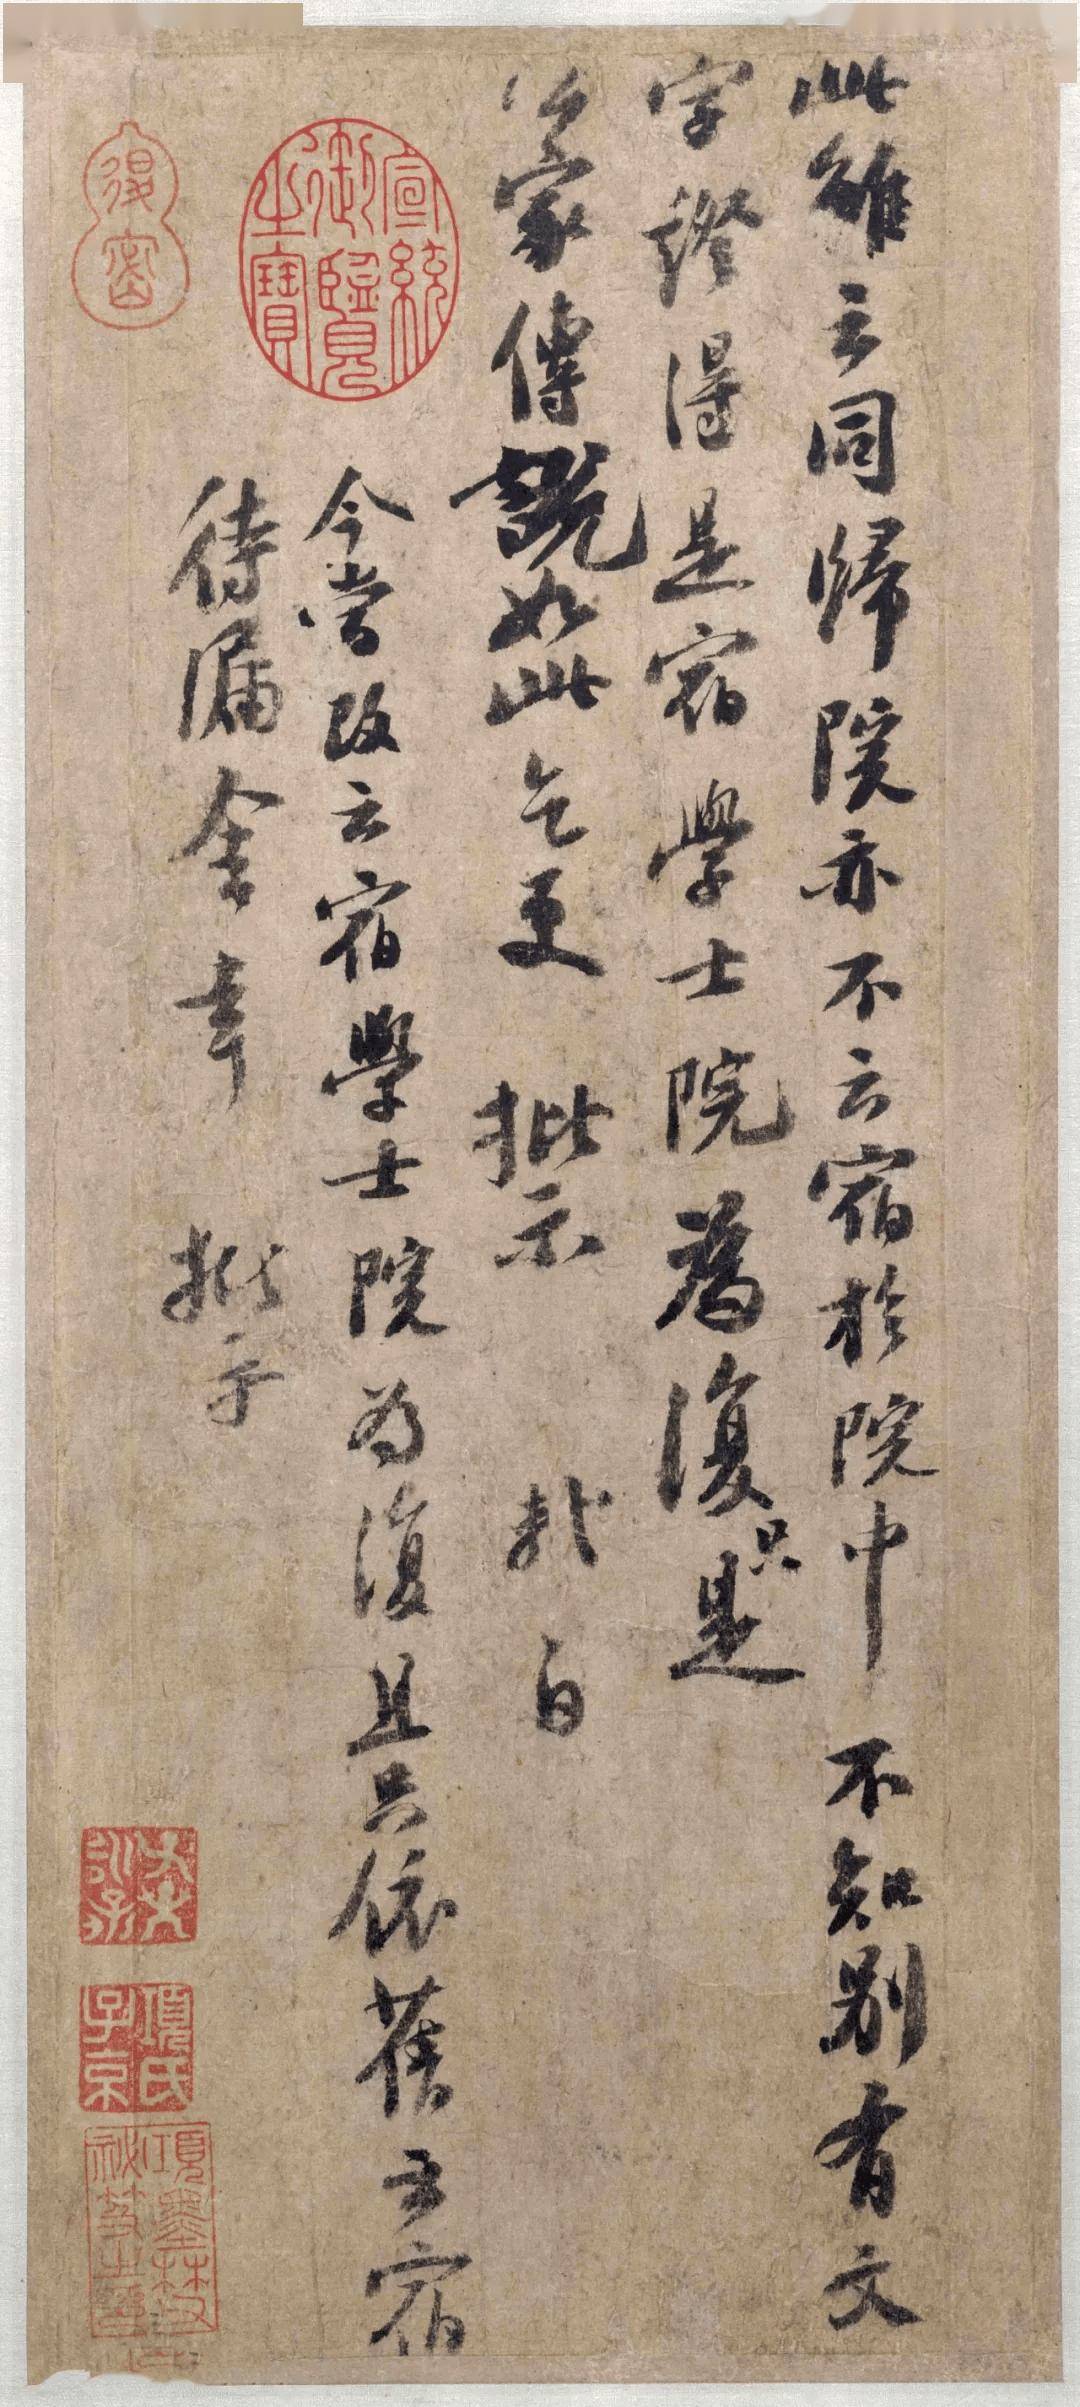 此雖云同歸院亦不云宿於院中不知別有文
字證得是宿學士院為復只是
公家傳說如此乞更批示 熹白
今嘗改云宿學士院為復且只依舊云宿
待漏舍幸批示
宣統御覽之寶
項氏子京
項墨林父祕笈之印